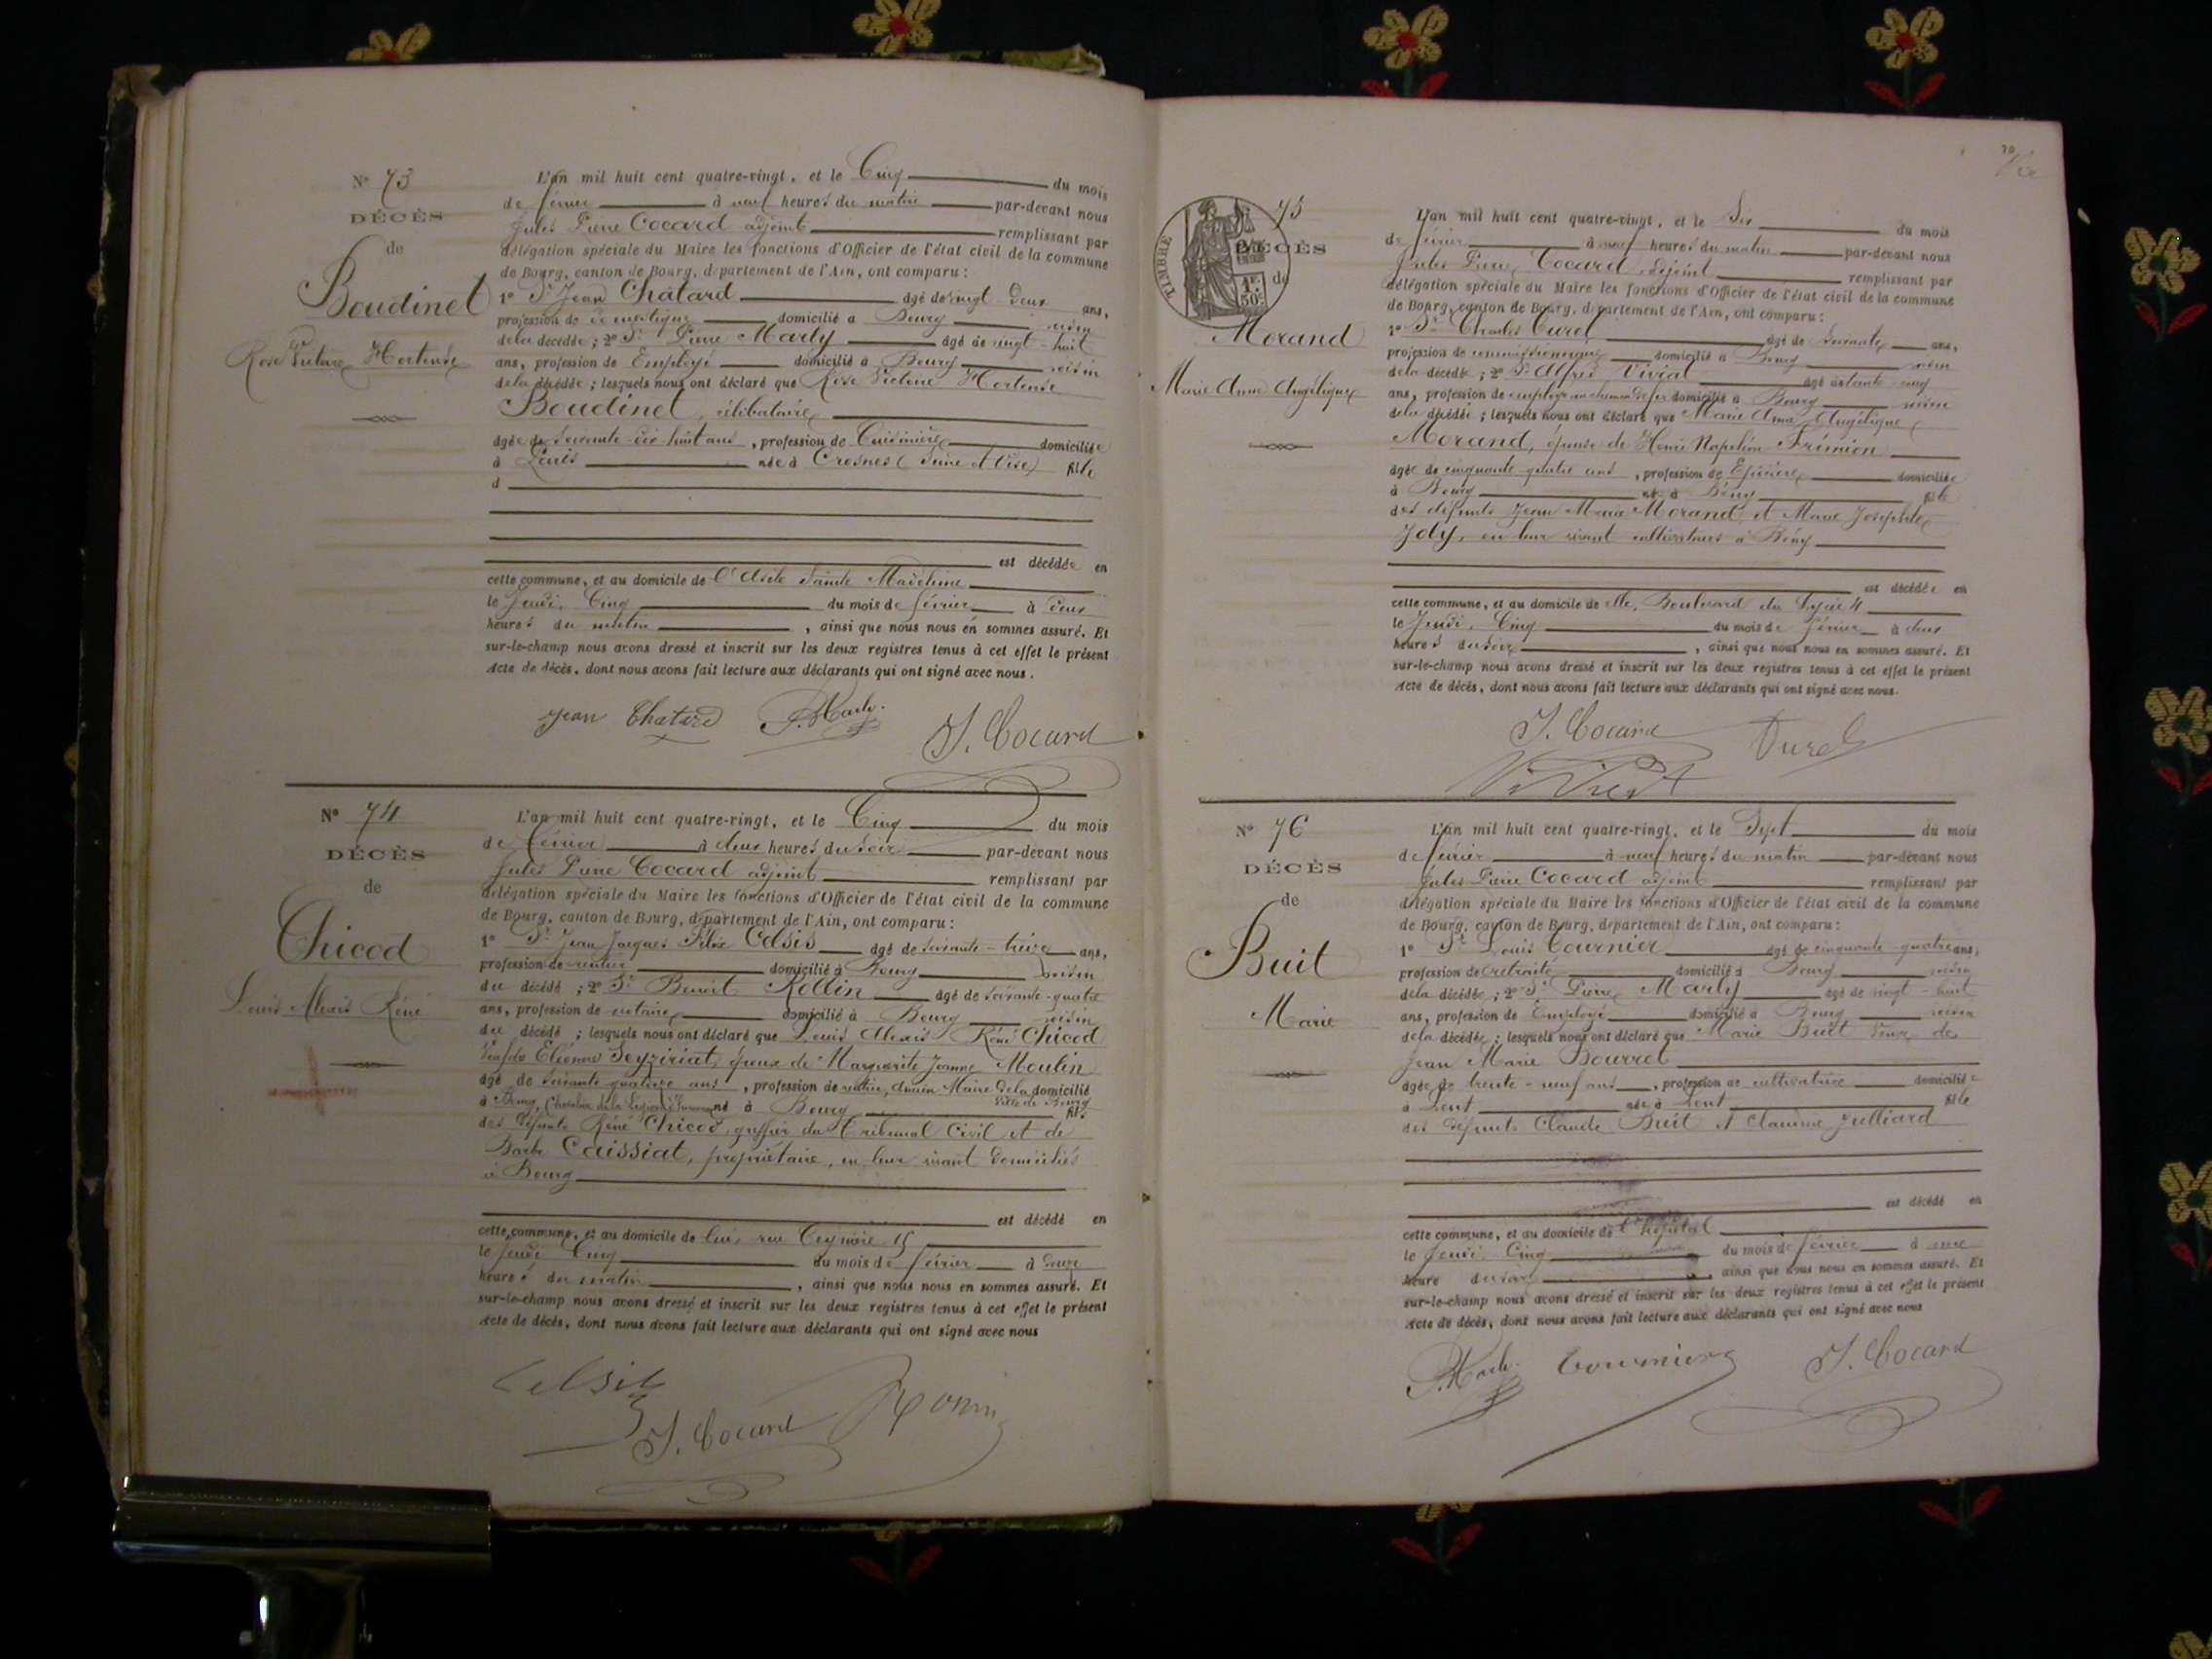 N° 73
DÉCÈS
de
Boudinet
Rose Victoire Hortense
L'an mil huit cent quatre-vingt, et le Cinq du mois
de février à neuf heures du matin par-devant nous
Jules Pierre Cocard adjoint remplissant par
délégation spéciale du Maire les fonctions d'Officier de l'état civil de la commune
de Bourg, canton de Bourg, département de l'Ain, ont comparu :
1° Sr Jean Chatard âgé de vingt-deux ans,
profession de domestique domicilié à Bourg voisin
de la décédée ; 2° Sr Pierre Marly âgé de vingt-huit
ans, profession de Employé domicilié à Bourg voisin
de la décédée ; lesquels nous ont déclaré que Rose Victoire Hortense
Boudinet, célibataire
âgée de soixante-dix-huit ans, profession de Cuisinière domiciliée
à Paris née à Crosnes (Seine et Oise) fille
d
est décédée en
cette commune, et au domicile de l'Asile Sainte Madeleine
le Jeudi, Cinq du mois de février à deux
heures du matin, ainsi que nous nous en sommes assuré. Et
sur-le-champ nous avons dressé et inscrit sur les deux registres tenus à cet effet le présent
Acte de décès, dont nous avons fait lecture aux déclarants qui ont signé avec nous.
Jean Chatard P. Marly. J. Cocard
N° 74
DÉCÈS
de
Chicod
Louis Alexis Réné
L'an mil huit cent quatre-vingt, et le Cinq du mois
de février à deux heures du soir par-devant nous
Jules Pierre Cocard adjoint remplissant par
délégation spéciale du Maire les fonctions d'Officier de l'état civil de la commune
de Bourg, canton de Bourg, département de l'Ain, ont comparu :
1° Sr Jean Jacques Félix Celsis âgé de soixante-treize ans,
profession de rentier domicilié à Bourg voisin
du décédé ; 2° Sr Benoit Rollin âgé de soixante-quatre
ans, profession de notaire domicilié à Bourg voisin
du décédé ; lesquels nous ont déclaré que Louis Alexis Réné Chicod
Veuf de Eléonore Seyziriat, époux de Marguerite Jeanne Moulin
âgé de soixante quatorze ans, profession de rentier, ancien Maire de la ville de Bourg domicilié
à Bourg, Chevalier de la Légion d'honneur né à Bourg fils
des défunts Réné Chicod, greffier du Tribunal Civil et de
Barbe Caissiat, propriétaire, en leur vivant domiciliés
à Bourg
est décédé en
cette commune, et au domicile de lui, rue 15
le Jeudi Cinq du mois de février à onze
heures du matin, ainsi que nous nous en sommes assuré. Et
sur-le-champ nous avons dressé et inscrit sur les deux registres tenus à cet effet le présent
Acte de décès, dont nous avons fait lecture aux déclarants qui ont signé avec nous
Celsis J. Cocard
70
TIMBRE
1F.
50c
75
DÉCÈS
de
Morand
Marie Anne Angélique
L'an mil huit cent quatre-vingt, et le Six du mois
de février à neuf heures du matin par-devant nous
Jules Pierre Cocard, adjoint remplissant par
délégation spéciale du Maire les fonctions d'Officier de l'état civil de la commune
de Bourg, canton de Bourg, département de l'Ain, ont comparu :
1° Sr Charles Curel âgé de Soixante ans,
profession de commissionnaire domicilié à Bourg voisin
de la décédée ; 2° Sr Alfred Vivial âgé de trente-cinq
ans, profession de employé au chemin de fer domicilié à Bourg voisin
de la décédée ; lesquels nous ont déclaré que Marie Anne Angélique
Morand, épouse de Henri Napoléon Frémion
âgée de cinquante-quatre ans, profession de Epicière domiciliée
à Bourg née à Bény fille
des défunts Jean Marie Morand et Marie Josephte
Joly, en leur vivant cultivateurs à Bény
est décédée en
cette commune, et au domicile de elle, Boulevard du Lycée 4
le Jeudi, Cinq du mois de février à deux
heures du soir, ainsi que nous nous en sommes assuré. Et
sur-le-champ nous avons dressé et inscrit sur les deux registres tenus à cet effet le présent
Acte de décès, dont nous avons fait lecture aux déclarants qui ont signé avec nous.
J. Cocard
N° 76
DÉCÈS
de
Buit
Marie
L'an mil huit cent quatre-vingt, et le Sept du mois
de février à neuf heures du matin par-devant nous
Jules Pierre Cocard adjoint remplissant par
délégation spéciale du Maire les fonctions d'Officier de l'état civil de la commune
de Bourg, canton de Bourg, département de l'Ain, ont comparu :
1° Sr Louis Tournier âgé de cinquante-quatre ans,
profession de retraité domicilié à Bourg voisin
de la décédée ; 2° Sr Pierre Marly âgé de vingt-huit
ans, profession de Employé domicilié à Bourg voisin
de la décédée ; lesquels nous ont déclaré que Marie Buit Veuve de
Jean Marie Bourret
âgée de trente-neuf ans, profession de cultivatrice domiciliée
à Lent née à Lent fille
des défunts Claude Buit et Claudine Julliard
est décédé en
cette commune, et au domicile de l'hôpital
le Jeudi, Cinq du mois de février à une
heure du soir, ainsi que nous nous en sommes assuré. Et
sur-le-champ nous avons dressé et inscrit sur les deux registres tenus à cet effet le présent
Acte de décès, dont nous avons fait lecture aux déclarants qui ont signé avec nous
P. Marly. Tournier J. Cocard